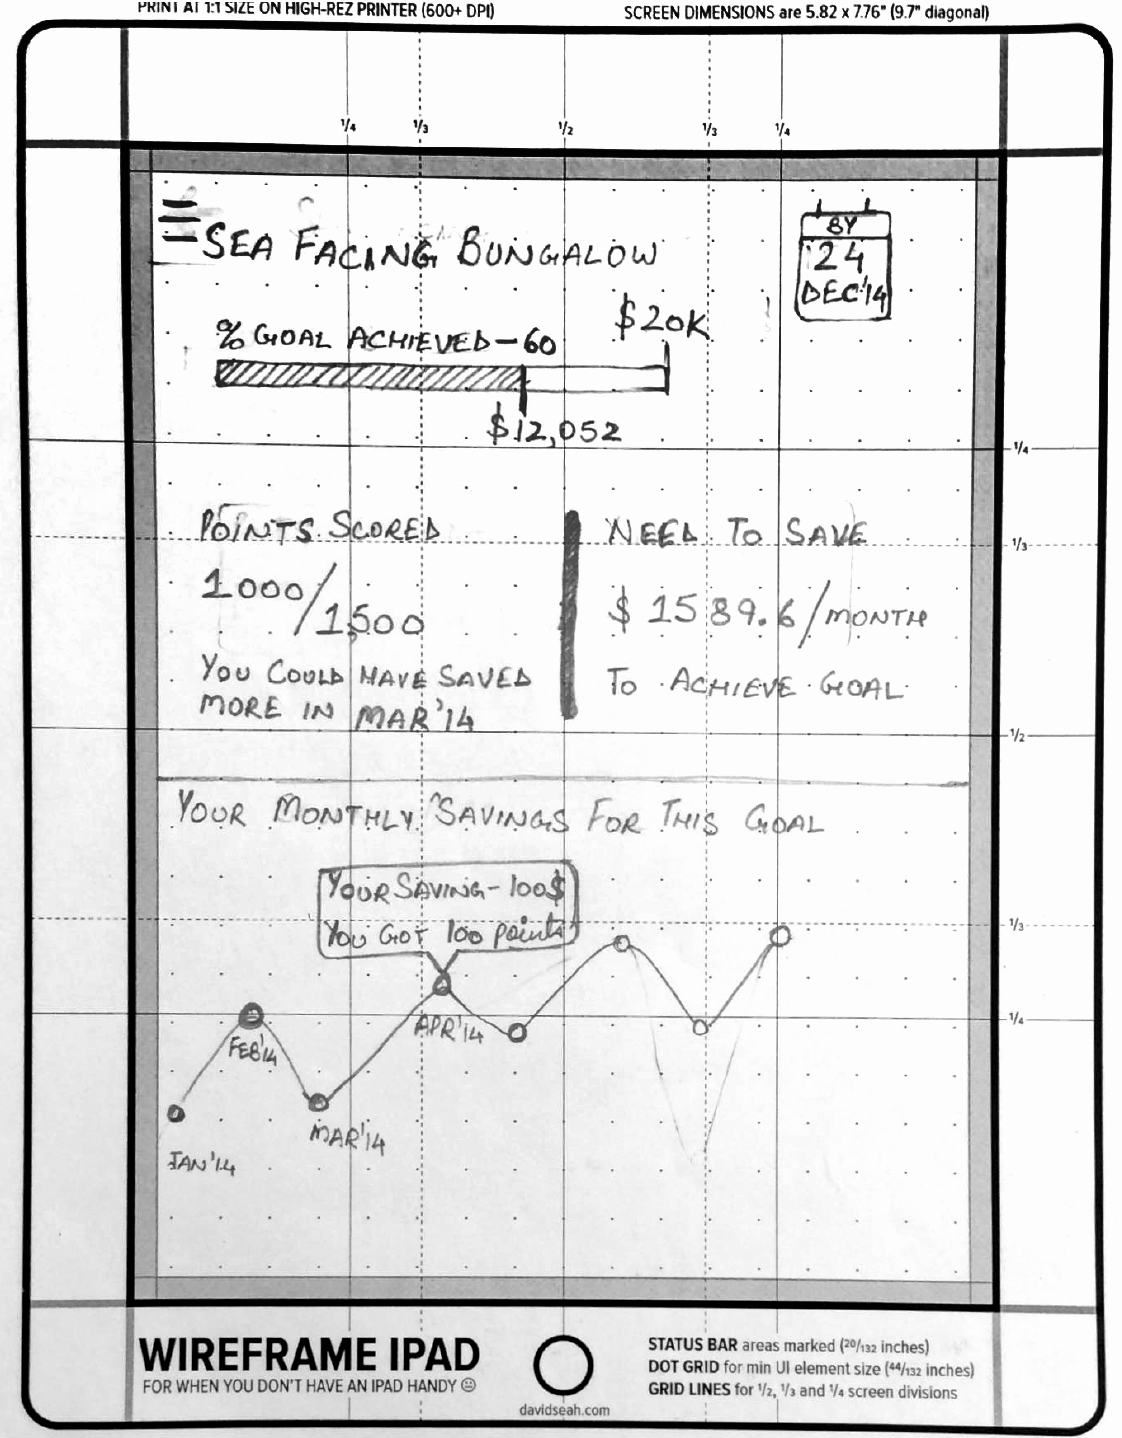 PRINT AT 1:1 SIZE ON HIGH-REZ PRINTER (600+ DPI)
SCREEN DIMENSIONS are 5.82 x 7.76" (9.7" diagonal)
1/4 1/3 1/2 1/3 1/4
SEA FACING BUNGALOW
BY
24
DEC'14
% GOAL ACHIEVED - 60
$20K
$12,052
1/4
POINTS SCORED
1000/1,500
YOU COULD HAVE SAVED
MORE IN MAR'14
NEED TO SAVE
$ 1589.6/MONTH
TO ACHIEVE GOAL
1/3
1/2
YOUR MONTHLY SAVINGS FOR THIS GOAL
YOUR SAVING - 100$
YOU GOT 100 points
1/3
1/4
JAN'14
FEB'14
MAR'14
APR'14
WIREFRAME IPAD
FOR WHEN YOU DON'T HAVE AN IPAD HANDY ☺
davidseah.com
STATUS BAR areas marked (20/132 inches)
DOT GRID for min UI element size (44/132 inches)
GRID LINES for 1/2, 1/3 and 1/4 screen divisions